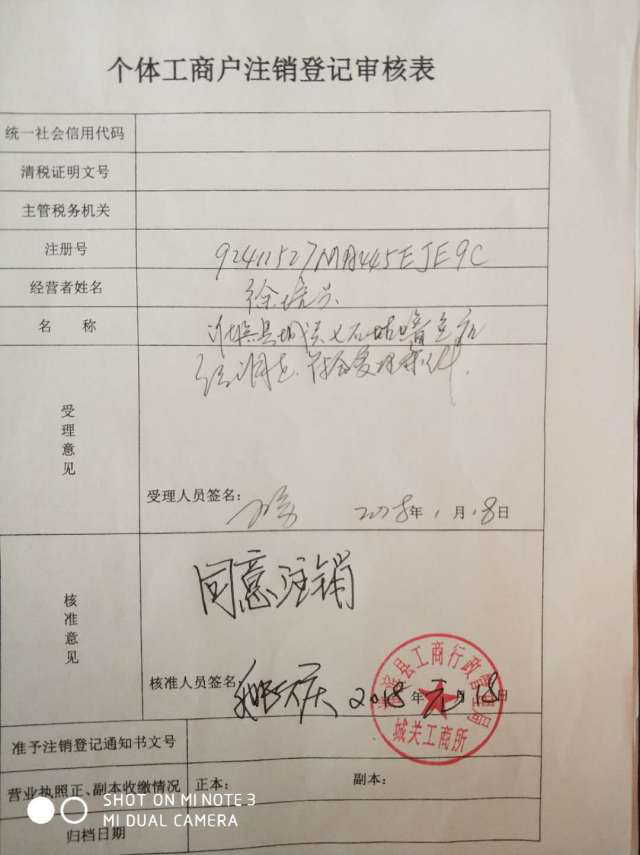 个体工商户注销登记审核表
统一社会信用代码
清税证明文号
主管税务机关
注册号 92411527MA445EJE9C
经营者姓名 徐培兴
名 称
受理意见
符合受理条件.
受理人员签名: 2018年1月18日
同意注销
核准意见
核准人员签名: 2018年元月18日
县工商行政管理局
城关工商所
准予注销登记通知书文号
营业执照正、副本收缴情况 正本: 副本:
归档日期
SHOT ON MI NOTE 3
MI DUAL CAMERA